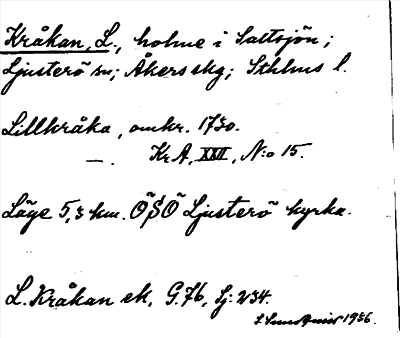 Kråkan, L., holme i Saltsjön;
Ljusterö sn; Åkers skg; Sthlms l.
Lillkråka, omkr. 1730.
—. Kr A, XXII, N:o 15.
Läge 5,3 km. ÖSÖ Ljusterö kyrka.
L. Kråkan ek, G. 76, Lj: 234.
1936.